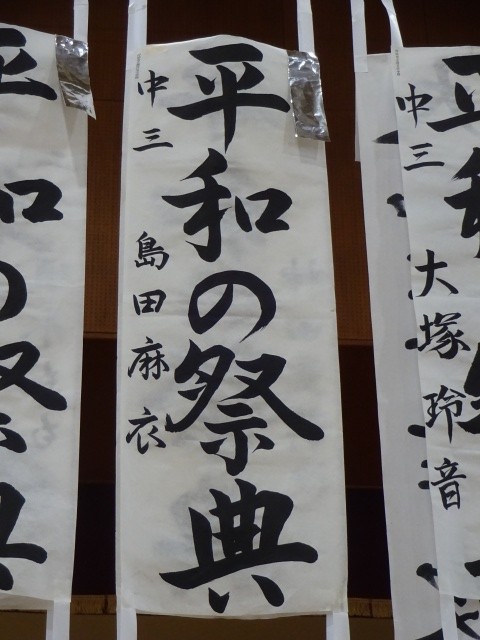 平和の祭典
中三 島田麻衣
中三 大塚玲音